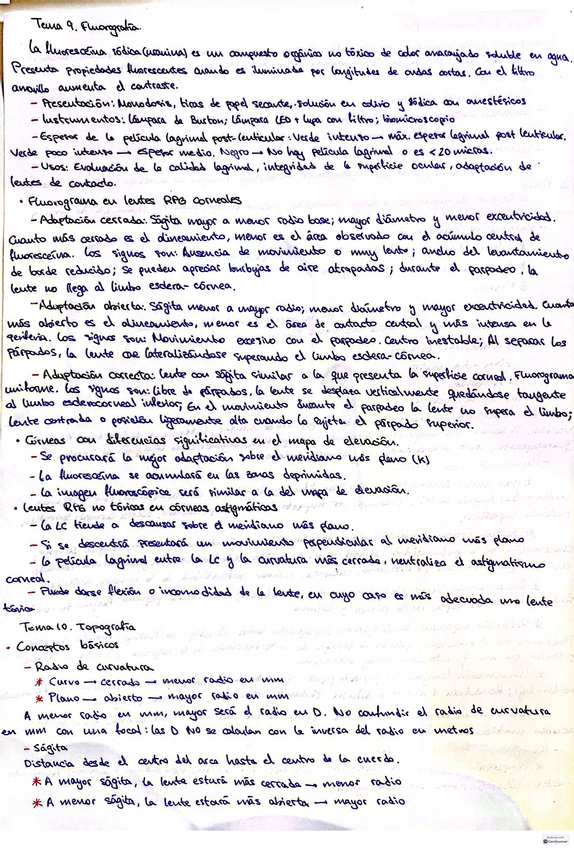 Tema 9. Fluorografía.
La fluoresceína sódica (uranina) es un compuesto orgánico no tóxico de color anaranjado soluble en agua.
Presenta propiedades fluorescentes cuando es iluminada por longitudes de ondas cortas. Con el filtro
amarillo aumenta el contraste.
- Presentación: Monodosis, tiras de papel secante, solución en colirio y sódica con anestésicos
- Instrumentos: Lámpara de Burton; Lámpara LED + lupa con filtro; biomicroscopio
- Espesor de la película lagrimal post-lenticular: Verde intenso → máx. espesor lagrimal post lenticular.
Verde poco intenso → espesor medio. Negro → No hay película lagrimal o es <20 micras.
- Usos: Evaluación de la calidad lagrimal, integridad de la superficie ocular, adaptación de
lentes de contacto.
• Fluorograma en lentes RPG corneales
- Adaptación cerrada: Ságita mayor a menor radio base; mayor diámetro y menor excentricidad.
Cuanto más cerrado es el alineamiento, menor es el área observado con el acúmulo central de
fluoresceína. Los signos son: Ausencia de movimiento o muy lento; ancho del levantamiento
de borde reducido; se pueden apreciar burbujas de aire atrapadas; durante el parpadeo, la
lente no llega al limbo esclera-córnea.
- Adaptación abierta: Ságita menor a mayor radio; menor diámetro y mayor excentricidad. Cuanto
más abierto es el alineamiento, menor es el área de contacto central y más intensa en la
periferia. Los signos son: Movimiento excesivo con el parpadeo. Centro inestable; Al separar los
párpados, la lente cae lateralizándose superando el limbo esclera-córnea.
- Adaptación correcta: lente con ságita similar a la que presenta la superficie corneal. Fluorograma
uniforme. Los signos son: libre de párpados, la lente se desplaza verticalmente quedándose tangente
al limbo esclerocorneal inferior; En el movimiento durante el parpadeo la lente no supera el limbo;
lente centrada o posición ligeramente alta cuando la sujeta el párpado superior.
• Córneas con diferencias significativas en el mapa de elevación.
- Se procurará la mejor adaptación sobre el meridiano más plano (K)
- La fluoresceína se acumulará en las zonas deprimidas.
- La imagen fluoroscópica será similar a la del mapa de elevación.
• Lentes RPG no tóricas en córneas astigmáticas
- La LC tiende a descansar sobre el meridiano más plano.
- Si se descentra presentará un movimiento perpendicular al meridiano más plano
- La película lagrimal entre la LC y la curvatura más cerrada, neutraliza el astigmatismo
corneal.
- Puede darse flexión o incomodidad de la lente, en cuyo caso es más adecuada una lente
tórica
Tema 10. Topografía
• Conceptos básicos
- Radio de curvatura
* Curvo → cerrado → menor radio en mm
* Plano → abierto → mayor radio en mm
A menor radio en mm, mayor será el radio en D. No confundir el radio de curvatura
en mm con una focal: las D NO se calculan con la inversa del radio en metros
- Ságita
Distancia desde el centro del arco hasta el centro de la cuerda.
* A mayor ságita, la lente estará más cerrada → menor radio
* A menor ságita, la lente estará más abierta → mayor radio
CamScanner